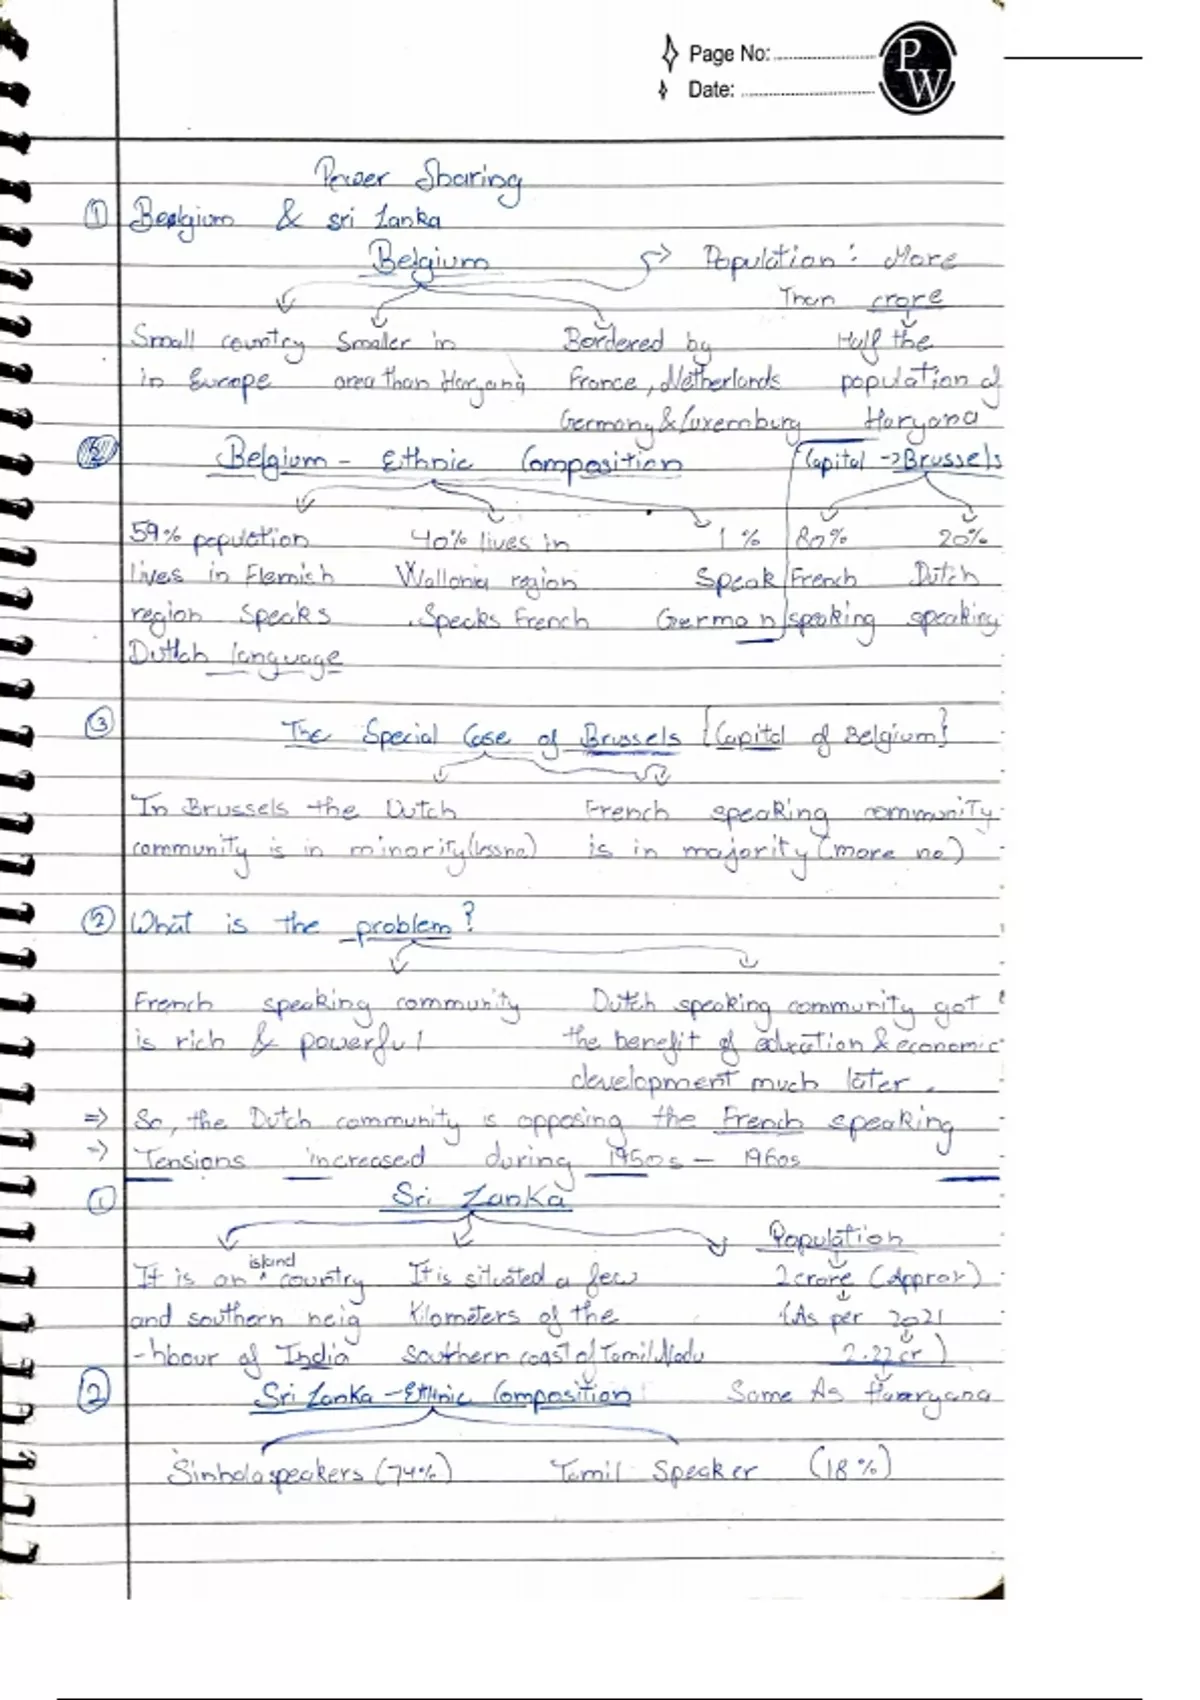 Page No:
Date:
PW
Power Sharing
① Belgium & sri Lanka
Belgium → Population : More
Than crore
Small country Smaller in Bordered by Half the
in Europe area than Haryana France, Netherlands population of
Germany & Luxemburg Haryana
Belgium - Ethnic Composition Capital → Brussels
59% popultion 40% lives in 1% 80% 20%
lives in Flemish Wallonia region Speak French Dutch
region speaks Speaks French German speaking speaking
Dutch language
③ The Special Case of Brussels {Capital of Belgium}
In Brussels the Dutch French speaking community
community is in minority (less no) is in majority (more no)
② What is the problem?
French speaking community Dutch speaking community got
is rich & powerful the benefit of education & economic
development much later.
⇒ So, the Dutch community is opposing the French speaking
⇒ Tensions increased during 1950s - 1960s
① Sri Lanka
Population
It is an island country It is situated a few 2 crore (Approx)
and southern neig Kilometers of the (As per 2021
-hbour of India Southern coast of Tamil Nadu 2.22 cr)
② Sri Lanka - Ethnic Composition Same As Hararyana
Sinhala speakers (74%) Tamil Speaker (18%)